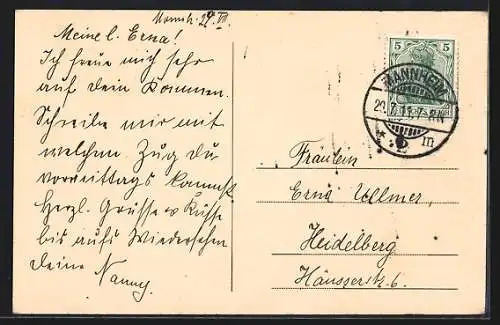 Mannh. 29. VII.
Meine l. Erna!
Ich freue mich sehr
auf dein Kommen.
Schreibe mir mit
welchem Zug du
vormittags kommst.
Herzl. Grüsse u Küsse
bis aufs Wiedersehen
deine Nanny.
5 5
MANNHEIM
Fräulein
Erna Ullmer,
Heidelberg
Häusserstr. 6.